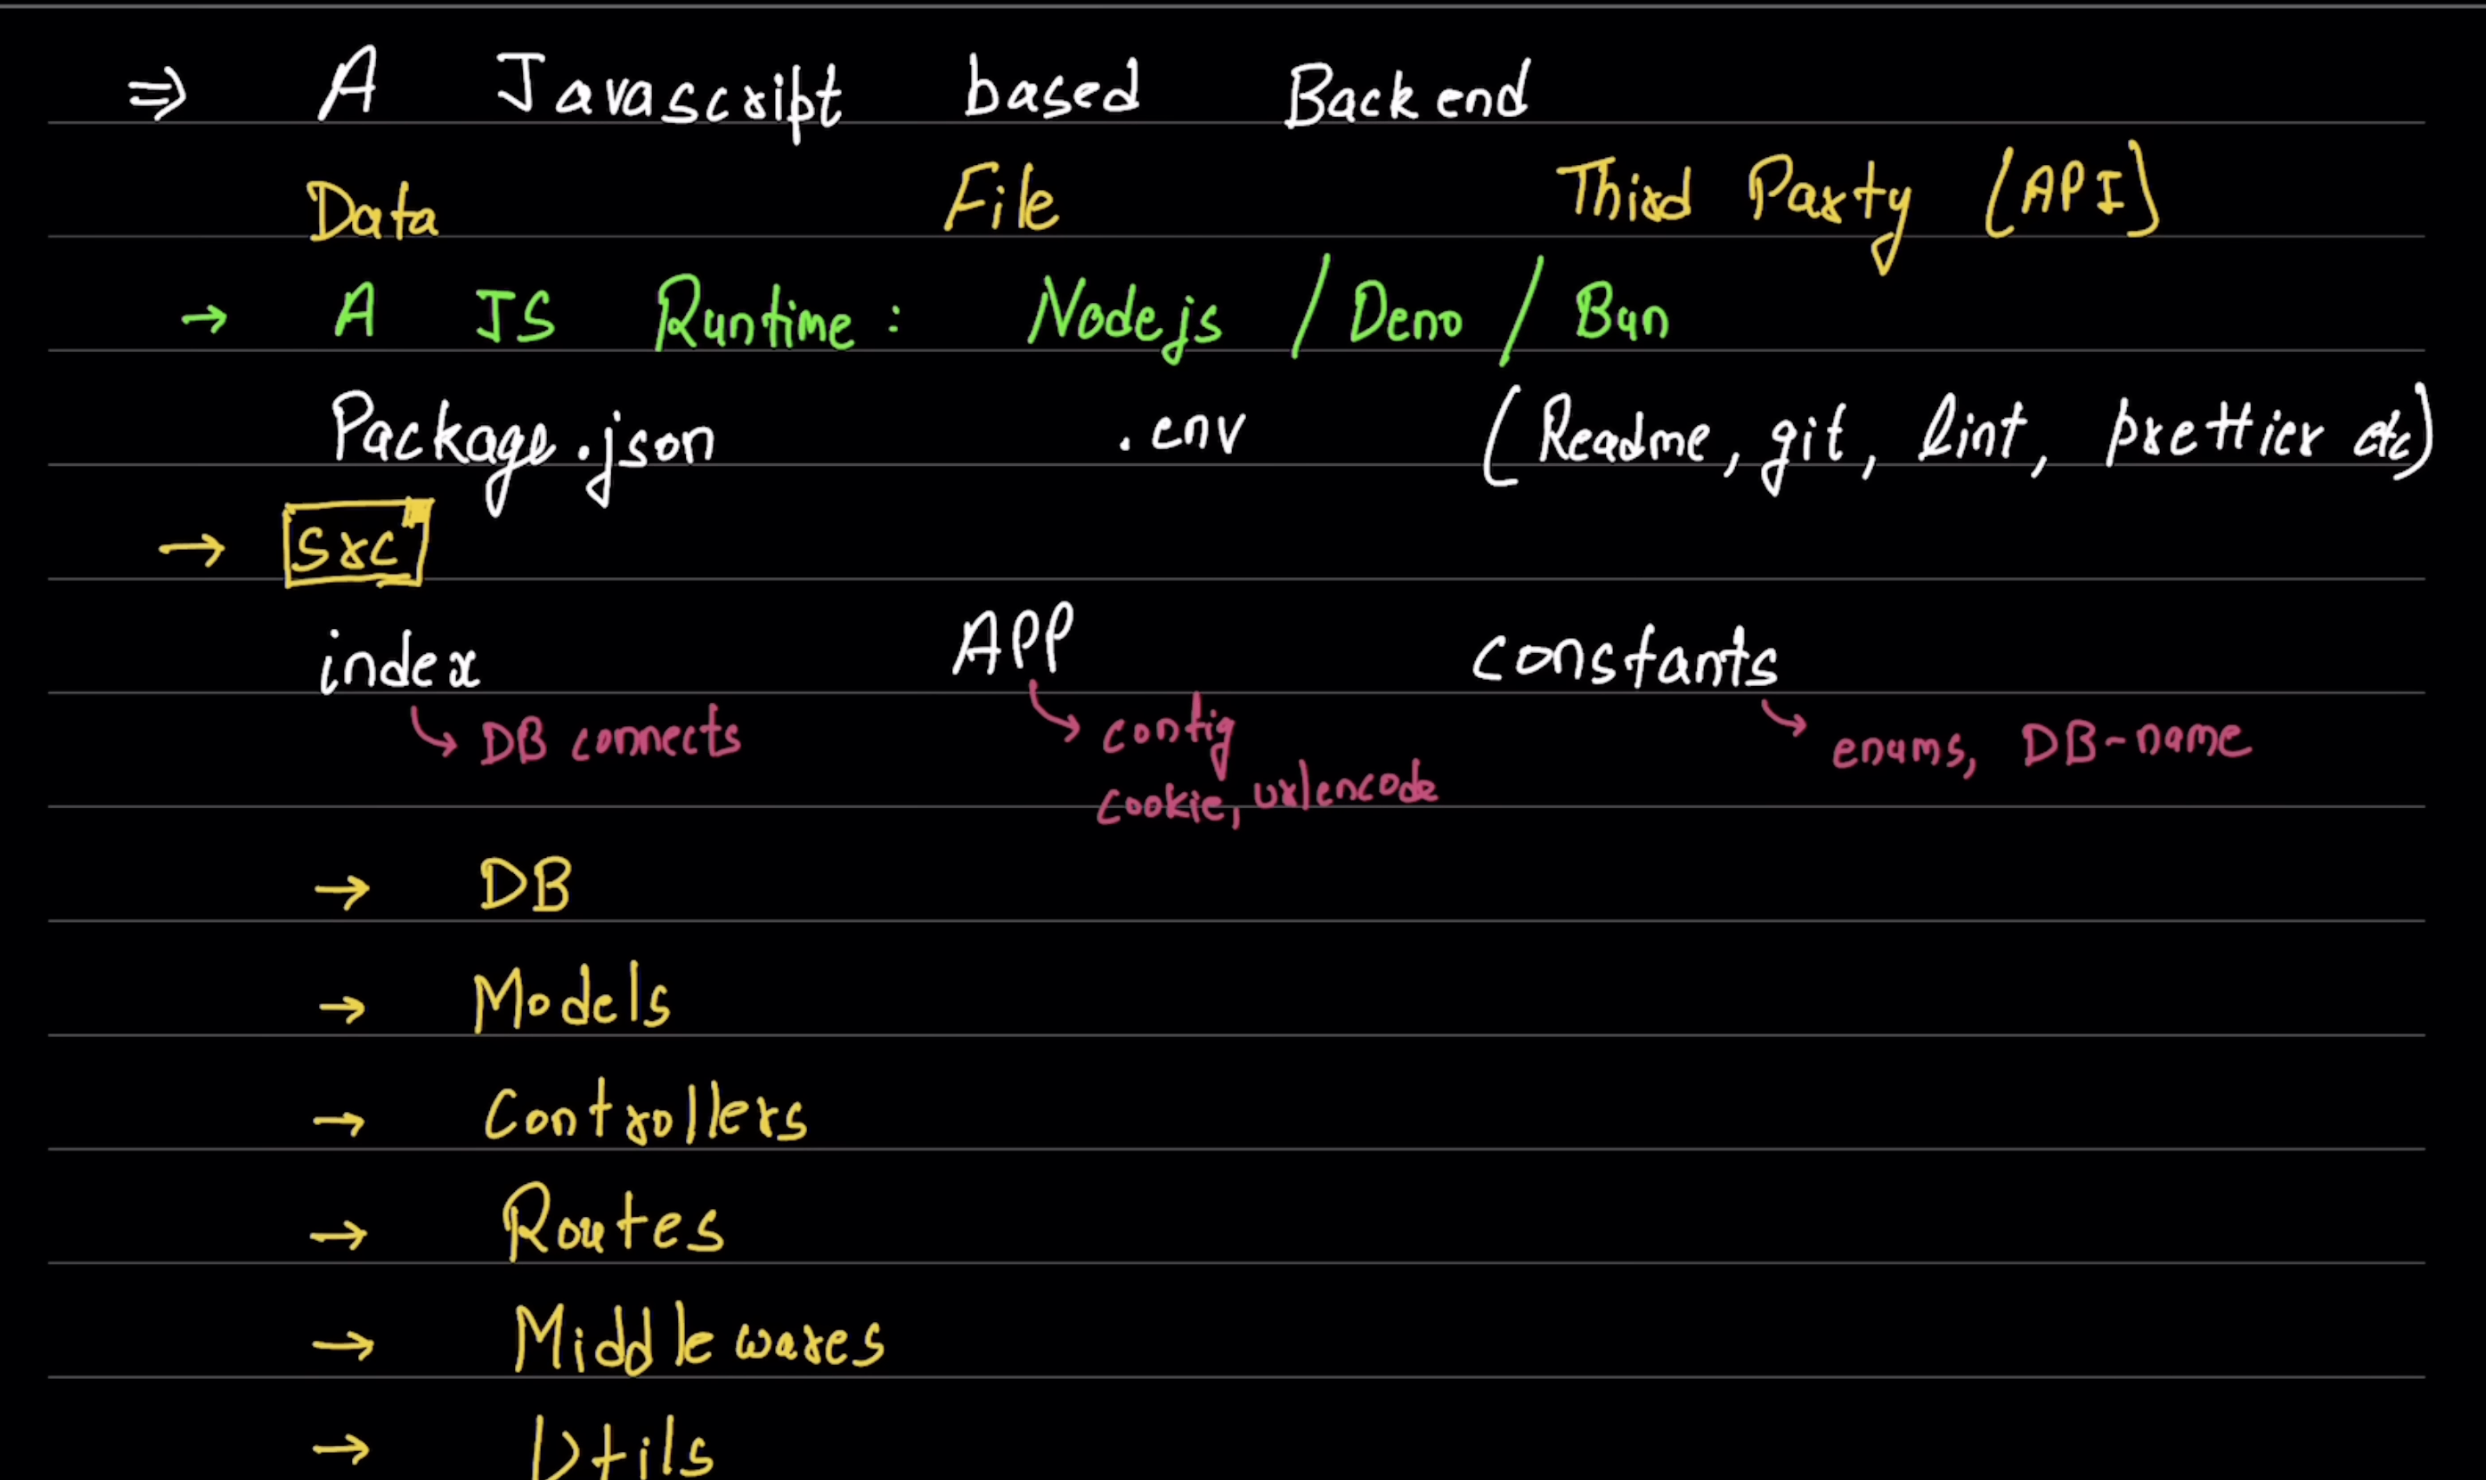 ⇒ A Javascript based Backend
Data File Third Party (API)
→ A JS Runtime : Nodejs / Deno / Bun
Package.json .env (Readme, git, lint, prettier etc)
→ src
index APP constants
DB connects config enums, DB-name
cookie, urlencode
→ DB
→ Models
→ Controllers
→ Routes
→ Middlewares
→ Utils